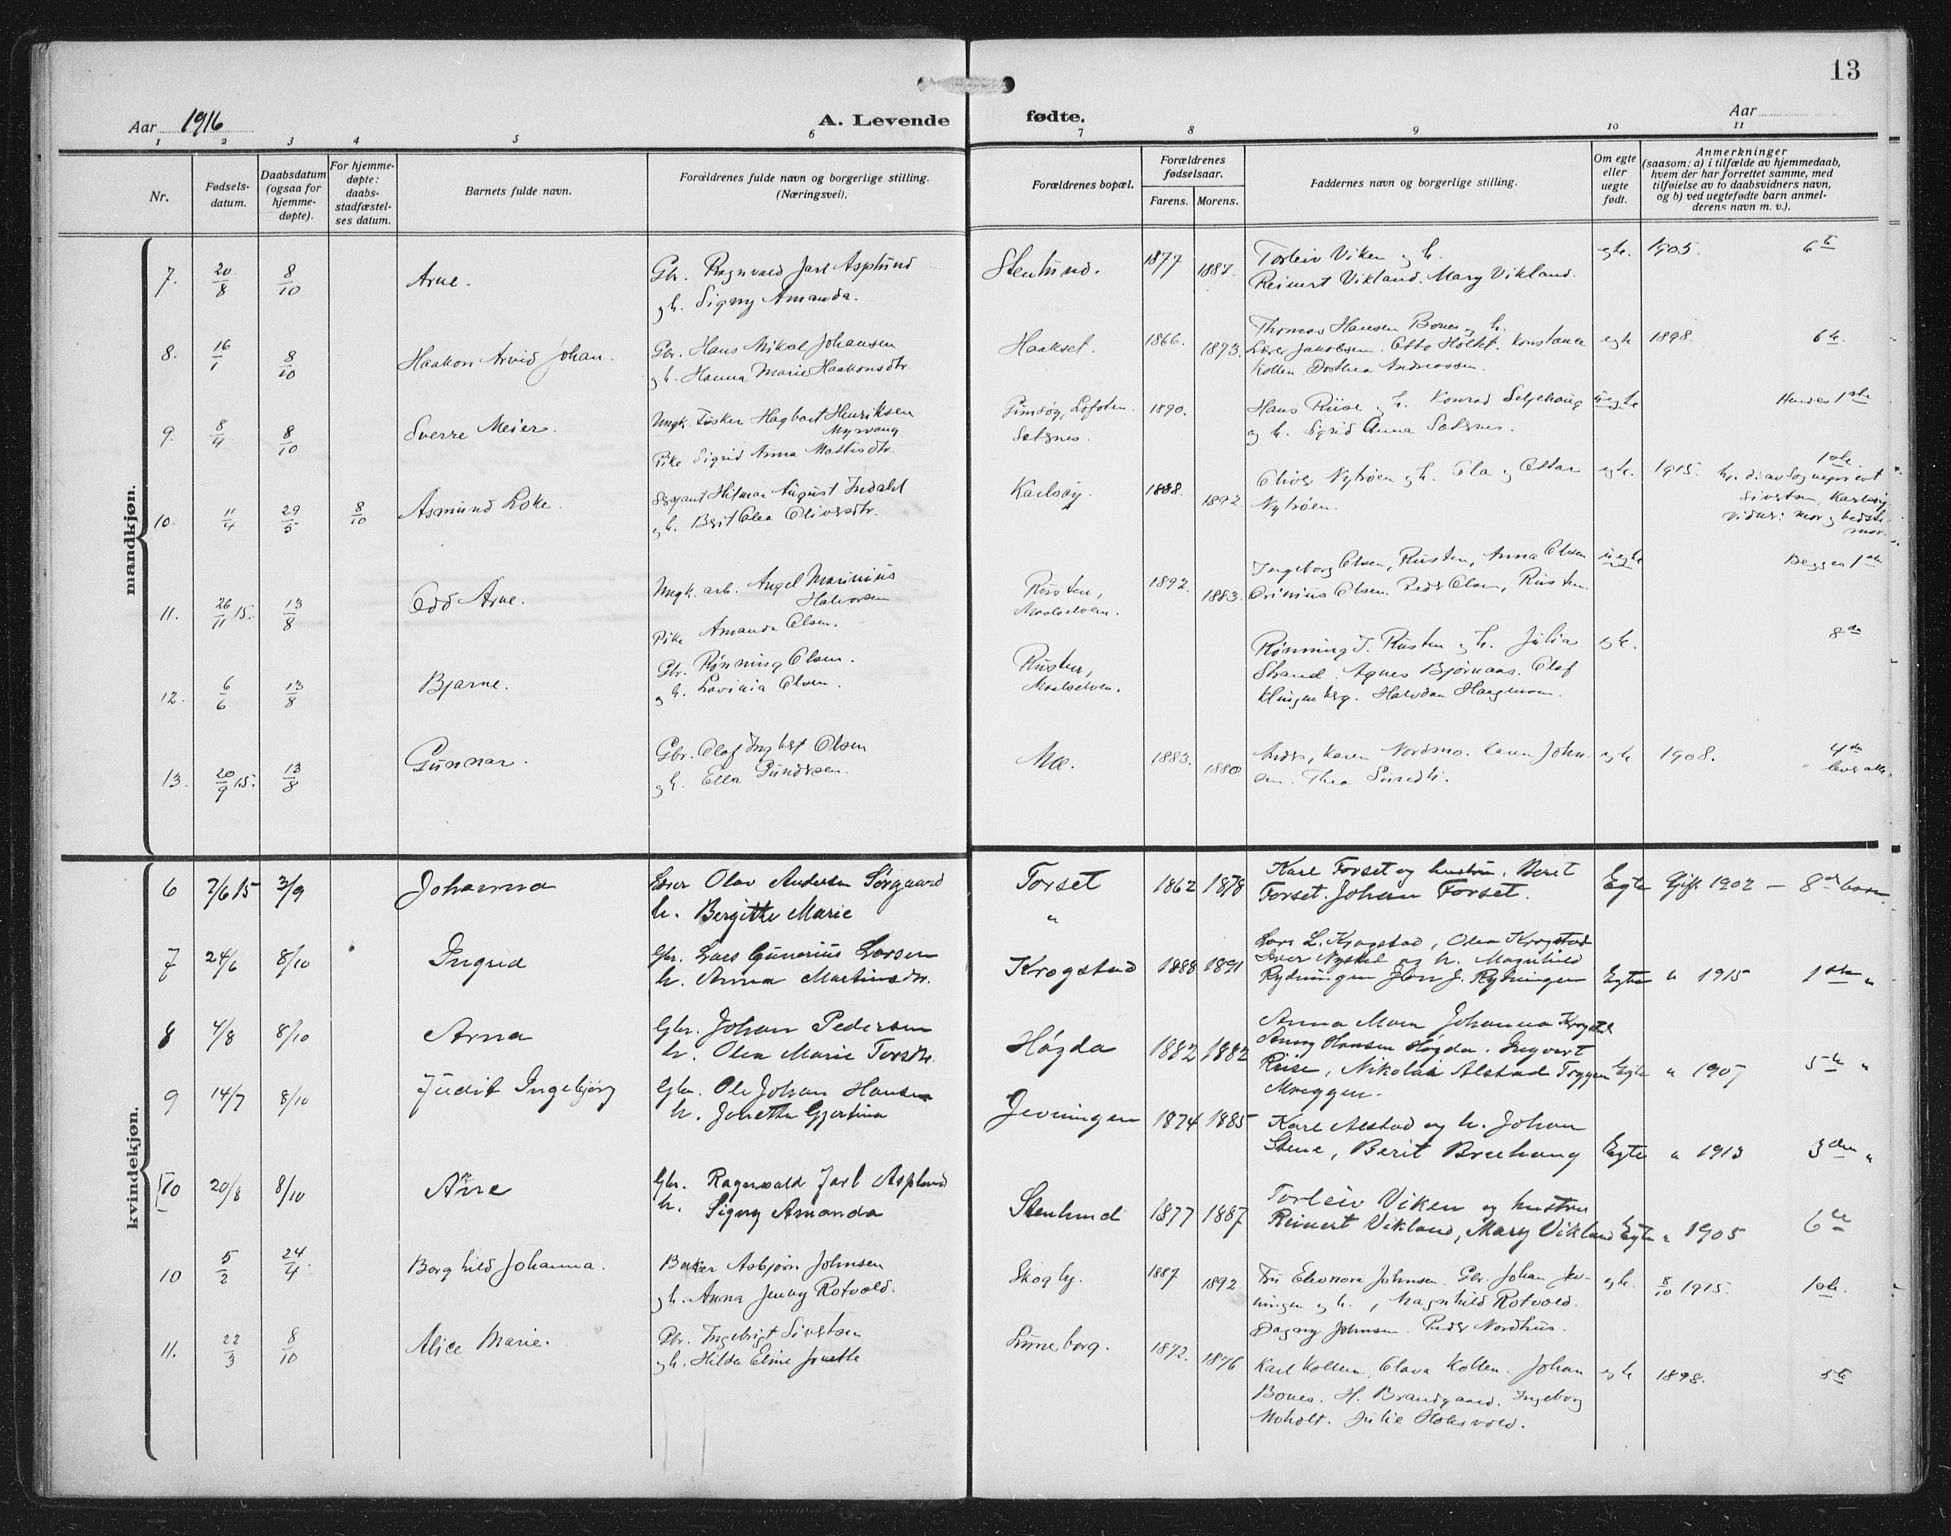 13
Aar 1916
A. Levende fødte.
Aar
1 2 3 4 5 6 7 8 9 10 11
Nr.
Fødsels-
datum.
Daabsdatum
(ogsaa for
hjemme-
døpte).
For hjemme-
døpte:
daabs-
stadfæstel-
ses datum.
Barnets fulde navn.
Forældrenes fulde navn og borgerlige stilling.
(Næringsvei).
Forældrenes bopæl.
Forældrenes
fødselsaar.
Farens. Morens.
Faddernes navn og borgerlige stilling.
Om egte
eller
uegte
født.
Anmerkninger
(saasom: a) i tilfælde av hjemmedaab,
hvem der har forrettet samme, med
tilføielse av to daabsvidners navn,
og b) ved uegtefødte barn anmel-
derens navn m. v.).
mandkjøn.
7. 20/8 8/10 Arne. Gbr. Ragnvald Jarl Asplund
og h. Signy Amanda.
Stenlund. 1877 1887. Torleiv Viken og h.
Reinert Vikland. Mary Vikland.
egte. 1905. 6te
8. 16/1 8/10 Haakon Arvid Johan. Gbr. Hans Mikal Johansen
og h. Hanna Marie Haakonsdtr.
Haakset. 1866. 1873. Thomas Hansen Bones og h.
Jakobsen. Otto Holte. Konstance
Kollen. Dorthea Andreassen.
egte 1898. 6te.
9. 8/4 8/10 Sverre Meier. Ungk. Fisker Hagbart Henriksen
Myrvang
Pike Sigrid Anna Mathisdtr.
Gimsøy, Lofoten.
Sætgnes.
1890. Hans Riise og h. Konrad Seljehaug
og h. Sigrid Anna
uegte Hendes 1ste
10. 11/4 29/5 8/10 Asmund Loke. Sersjant Hilmar August Indahl
og h. Berit Olea Oliversdtr.
Karlsøy. 1888. 1892. Oliver Nybrøen og h. Ola og Ottar
Nybrøen.
egte. 1915. 1ste.
hj. d. av Sogneprest
Sivertsen, Karlsøy
Vidner: mor og bedste-
mor.
11. 26/11 15. 13/8 Odd Arne. Ungk. arb. Angel Marinius
Halvorsen
Pike Amanda Olsen.
Rusten,
Maalselven.
1892. 1883. Ingeborg Olsen, Rusten, Anna Olsen
Olsen. Peder Olsen, Rusten.
uegte Begges 1ste
12. 6/6 13/8 Bjarne. Gbr. Rønning Olsen.
og h. Lovinia Olsen.
Rusten,
Maalselven.
Rønning J. Rusten og h. Julia
Strand. Agnes Bjørnaas. Olaf
Klingenberg. Halvdan Haagensen.
egte. 8de
13. 20/9 15. 13/8 Gunnar. Gbr. Olaf Ingbert Olsen
og h. Ella Gundersen.
Mo. 1883. 1880 Anders, Karen Nordmo. Karen John-
sen. Thea
egte 1908. 4de
lever alle.
kvindekjøn.
6 7/6 15 3/9 Johanna Lærer Olav Andersen Sørgaard
h. Bergitte Marie
Forset
"
1862 1878 Karl Forset og hustru. Beret
Forset. Johan Forset.
Egte Gift 1902 — 8de barn.
7 24/6 8/10 Ingrid Gbr. Lars Gunerius Larsen
h. Anna Martinsdtr.
Krogstad 1888 1891 Lars L. Krogstad, Olea Krogstad
Iver Nystad og h. Magnhild
Rydningen Jon J. Rydningen
Egte " 1915 1ste "
8 4/8 8/10 Arna Gbr. Johan Pedersen
h. Olea Marie Torsdtr.
Høgda 1882 1882 Anna Moen Johanna
Hansen Høgda. Ingvart
Riise, Nikolai Alstad Trygen
Moeggen.
Egte " 1907 5te "
9 14/7 8/10 Judit Ingebjørg Gbr. Ole Johan Hansen
h. Jonetta Gjertina
Jevningen 1874 1885 Karl Alstad og h. Johan
Stene, Berit Brechaug
Egte " 1913 3die "
[10 20/8 8/10 Arne Gbr. Ragnvald Jarl Asplund
h. Signy Amanda
Stenlund 1877 1887 Torleiv Viken og hustru
Reinert Vikland, Mary Vikland
Egte " 1905 6te
10 5/2 24/4. Borghild Johanna. Baker Asbjørn Johnsen
og h. Anna Jenny Rotvold.
Skogly. 1887 1892. Fru Eleonora Johnsen. Gbr. Johan Jev-
ningen og h., Magnhild Rotvold.
Dagny Johnsen. Peder Nordhus.
egte. 8/10 1915. 1ste.
11. 22/3 8/10 Alice Marie. Gbr. Ingebrigt Sivertsen
og h. Hilda Eline Jonette
Luneborg. 1872. 1876 Karl Kollen, Olava Kollen. Johan
Bones. H. Brandgaard. Ingeborg
Moholt. Julie Holmvold.
egte 1898. 5te